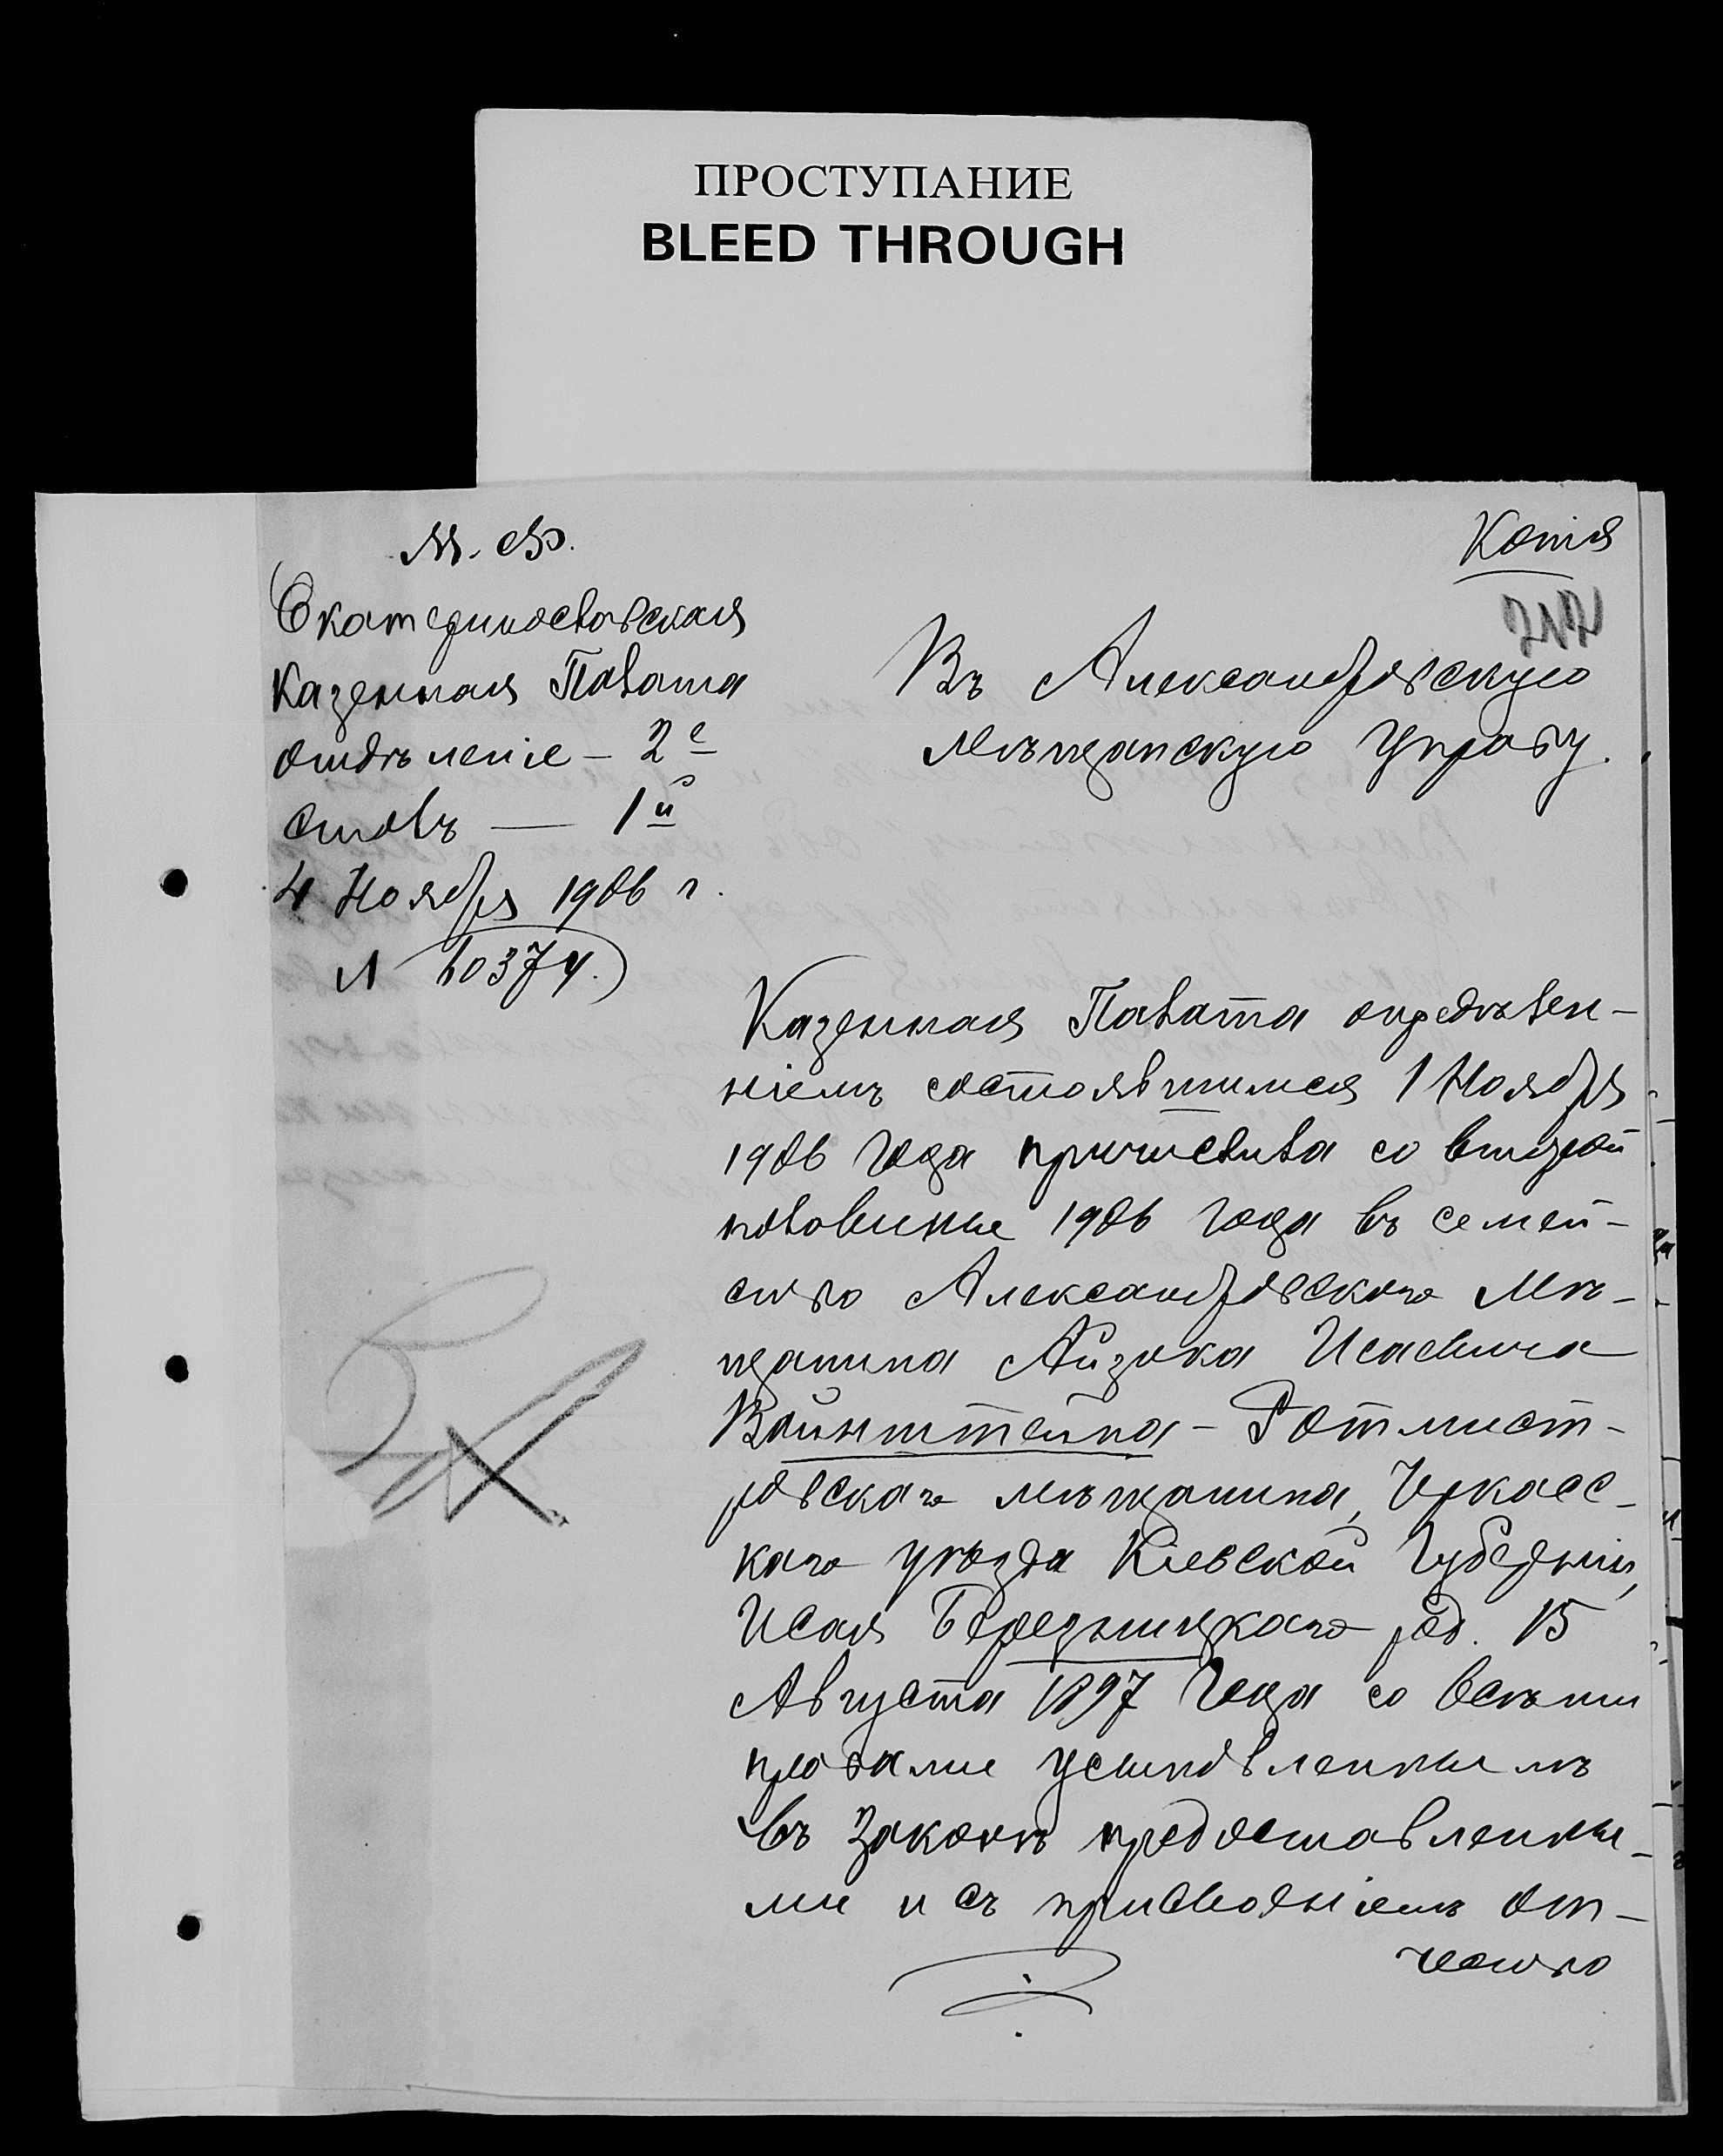 ПРОСТУПАНИЕ
BLEED THROUGH
М. Ф.
Копія
Екатеринославская
Казенная Палата
отдѣленіе – 2е
столъ — 1й
4 Ноября 1906 г.
№ 60374.
Въ Александровскую
Мѣщанскую Управу.
Казенная Палата опредѣлен-
ніемъ состоявшимся 1 Ноября
1906 года причислила со второй
половины 1906 года въ семей-
ство Александровскаго Мѣ-
щанина Айзика Исаевича
Вайнштейна – Ротмист-
ровскаго мѣщанина, Черкасс-
каго уѣзда Кіевской Губерніи,
Исая Березницкаго род. 15
Августа 1897 года со всѣми
правами усыновленнымъ
въ законѣ предоставленны-
ми и съ присвоеніемъ от-
чество